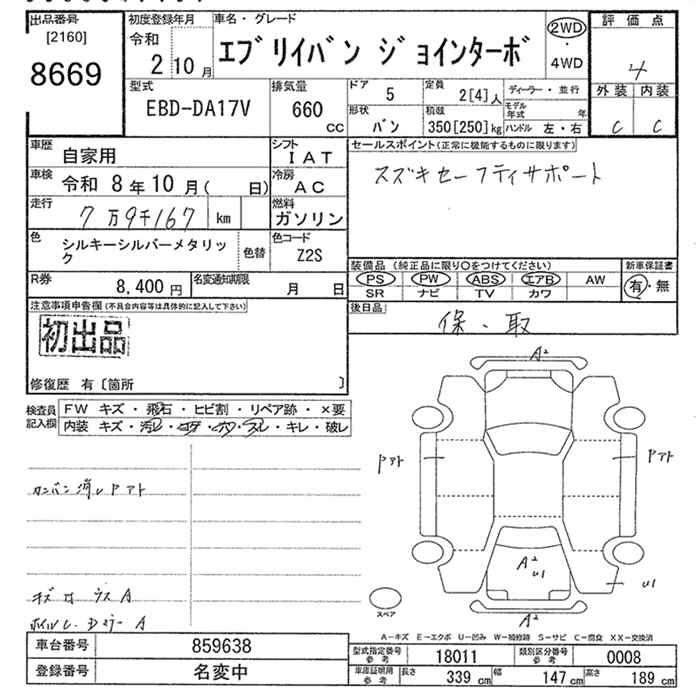 出品番号
[2160]
8669
初度登録年月
令和
2 10月
車名・グレード
エブリイバン ジョインターボ
2WD
・
4WD
評価点
4
外装 内装
C C
型式
EBD-DA17V
排気量
660
cc
ドア
5
定員
2[4]人
形状
バン
積載
350[250]kg
ディーラー・並行
モデル年式 年
ハンドル 左・右
車歴
自家用
シフト
IAT
車検
令和 8年10月( 日)
冷房
AC
走行
7万9千167 km
燃料
ガソリン
色
シルキーシルバーメタリック
色替
色コード
Z2S
R券
8,400 円
名変通知期限
月 日
セールスポイント(正常に機能するものに限ります)
スズキセーフティサポート
装備品(純正品に限り○をつけてください)
新車保証書
PS PW ABS エアB AW
SR ナビ TV カワ
有・無
後日品
保・取
注意事項申告欄(不具合内容等は具体的に記入して下さい)
初出品
修復歴 有〔箇所 〕
検査員
記入欄
FW キズ・飛石・ヒビ割・リペア跡・×要
内装 キズ・汚レ・コゲ・穴・スレ・キレ・破レ
カンバン消しPアト
A2
Pアト
Pアト
A2
U1
U1
A2
スペア
A
A
A-キズ E-エクボ U-凹み W-補修跡 S-サビ C-腐食 XX-交換済
車台番号
859638
登録番号
名変中
型式指定番号
参考
18011
類別区分番号
参考
0008
車庫証明用
参考
長さ
339 cm
幅
147 cm
高さ
189 cm